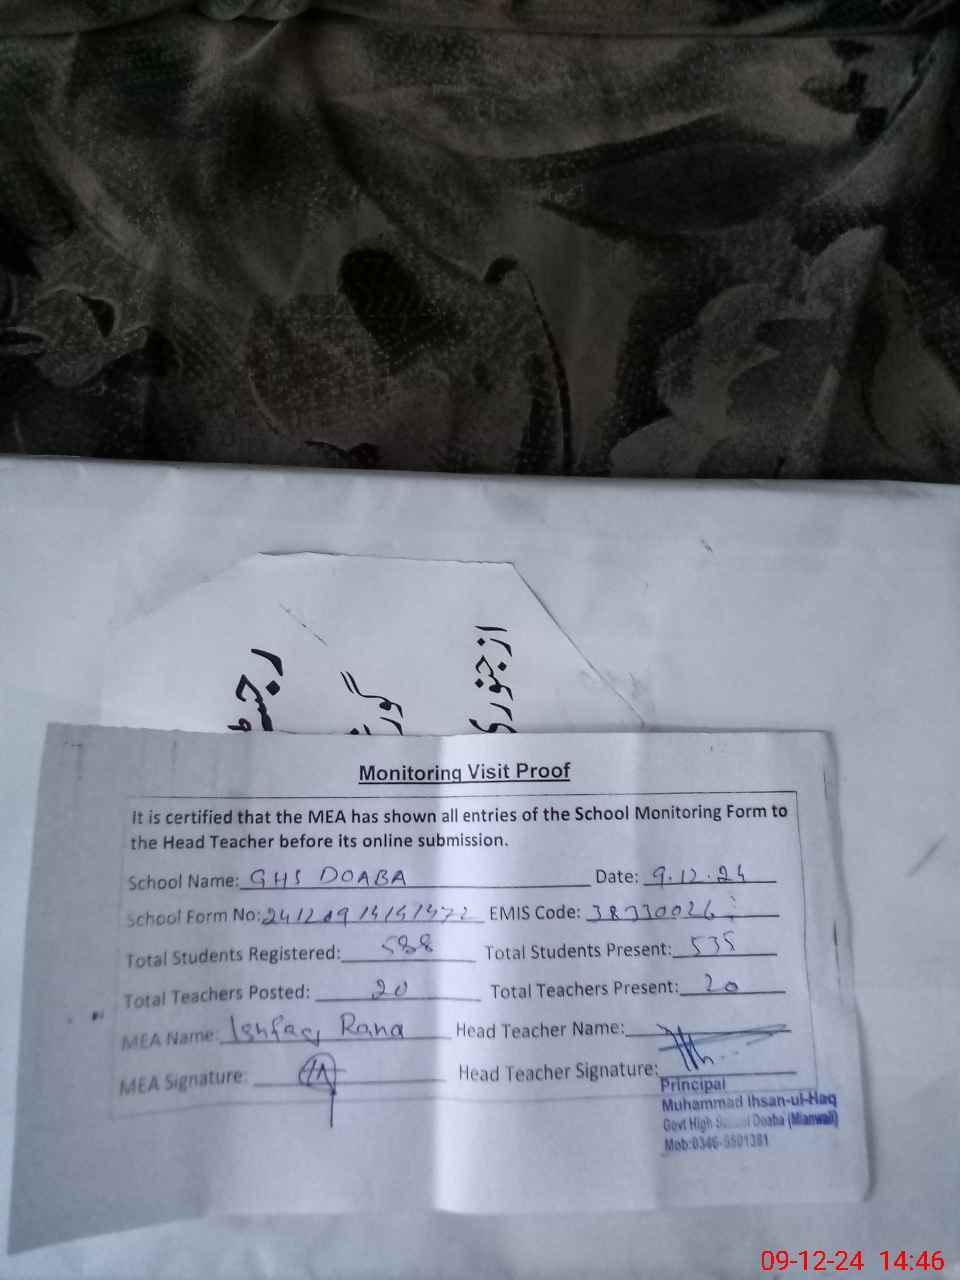 از جنوری
گو
رجس
Monitoring Visit Proof
It is certified that the MEA has shown all entries of the School Monitoring Form to
the Head Teacher before its online submission.
School Name: GHS DOABA Date: 9.12.24
School Form No: EMIS Code: 38330026
Total Students Registered: 588 Total Students Present: 535
Total Teachers Posted: 20 Total Teachers Present: 20
MEA Name: Ishfaq Rana Head Teacher Name:
MEA Signature: Head Teacher Signature:
Principal
Muhammad Ihsan-ul-Haq
Govt High School Doaba (Mianwali)
Mob:0346-5501381
09-12-24 14:46